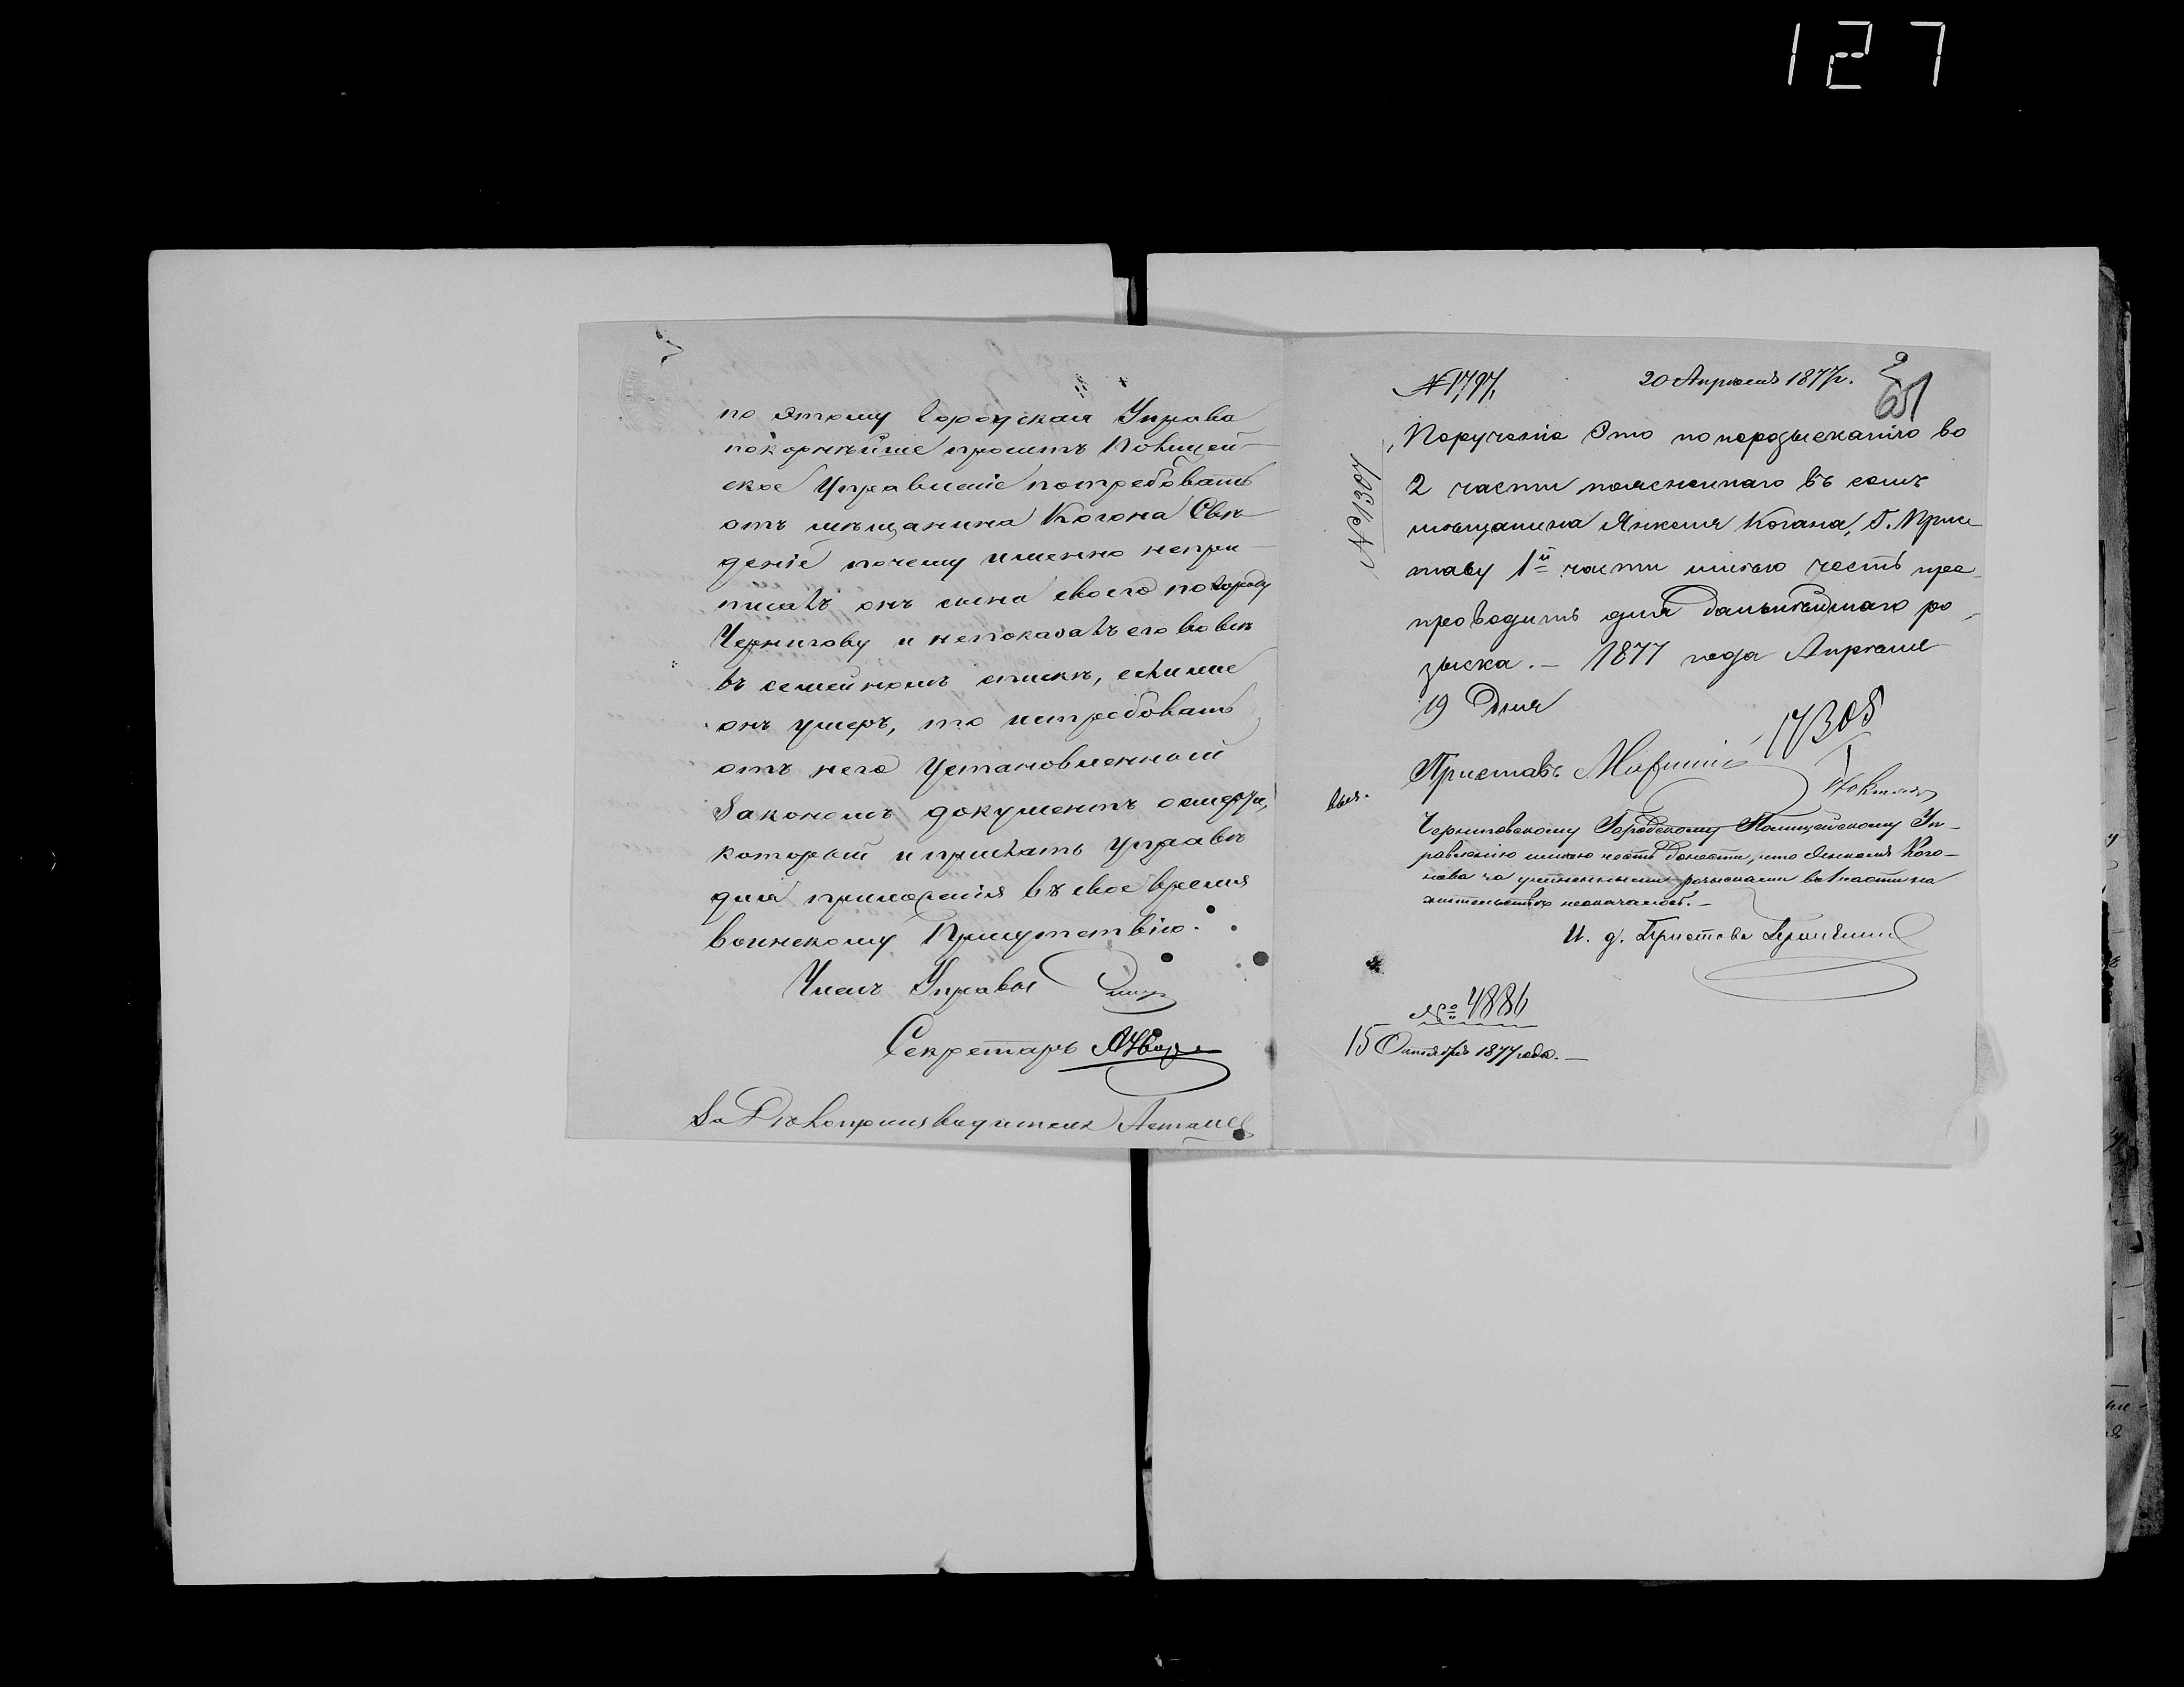 127
по этому Городская Управа
покорнѣйше проситъ Полицей-
ское Управленіе потребовать
отъ мѣщанина Когона Свѣ-
деніе почему именно непри-
писалъ онъ сына своего по городу
Чернигову и непоказалъ его вовсе
въ семейномъ спискѣ, если же
онъ умеръ, то истребовать
отъ него установленный
Закономъ документъ о смерти,
который и прислать управѣ
для приложенія въ свое время
воинскому Присутствію.
Членъ Управы
Секретарь
За Дѣлопроизводителя
№ 1797.
20 Апреля 1877 г.
651
№ 1307
Порученіе Это по неразысканію во
2 части поясненнаго въ семъ
мѣщанина Янкеля Когана, Г. Прис-
таву 1й части имѣю честь пре-
проводить для дальнѣйшаго ро-
зыска. – 1877 года Апреля
19 Дня
Приставъ
17305
Черниговскому Городскому Полицейскому Уп-
равленію имѣю честь донести, что Янкеля Кого-
нова за учиненными розысками въ 1 части на
жительствѣ неоказалось. –
И. д. Пристава
№ 4886
15 Октября 1877 года. –